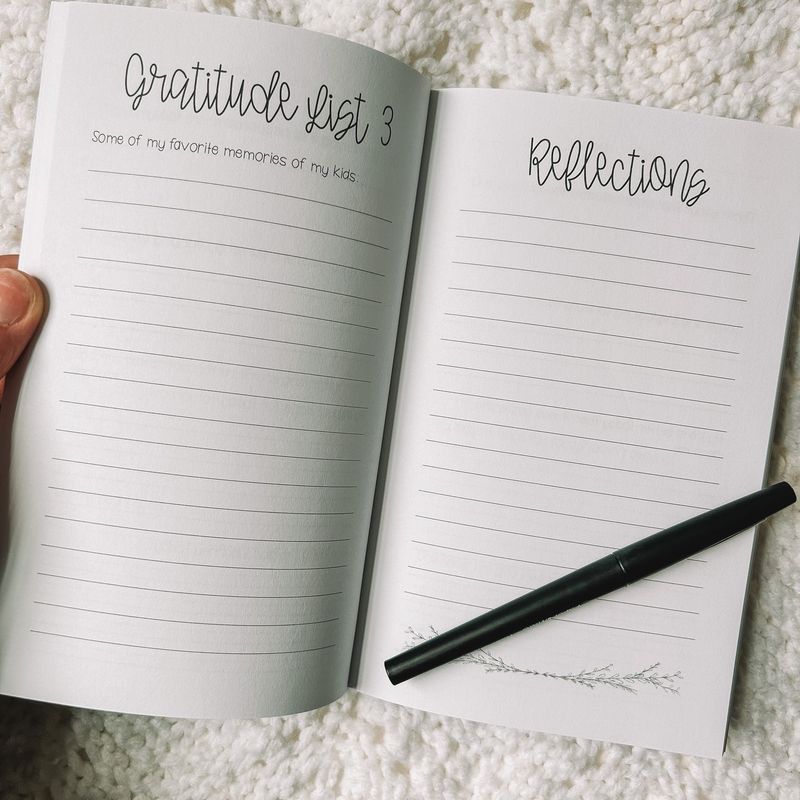 Gratitude List 3
Some of my favorite memories of my kids.
Reflections